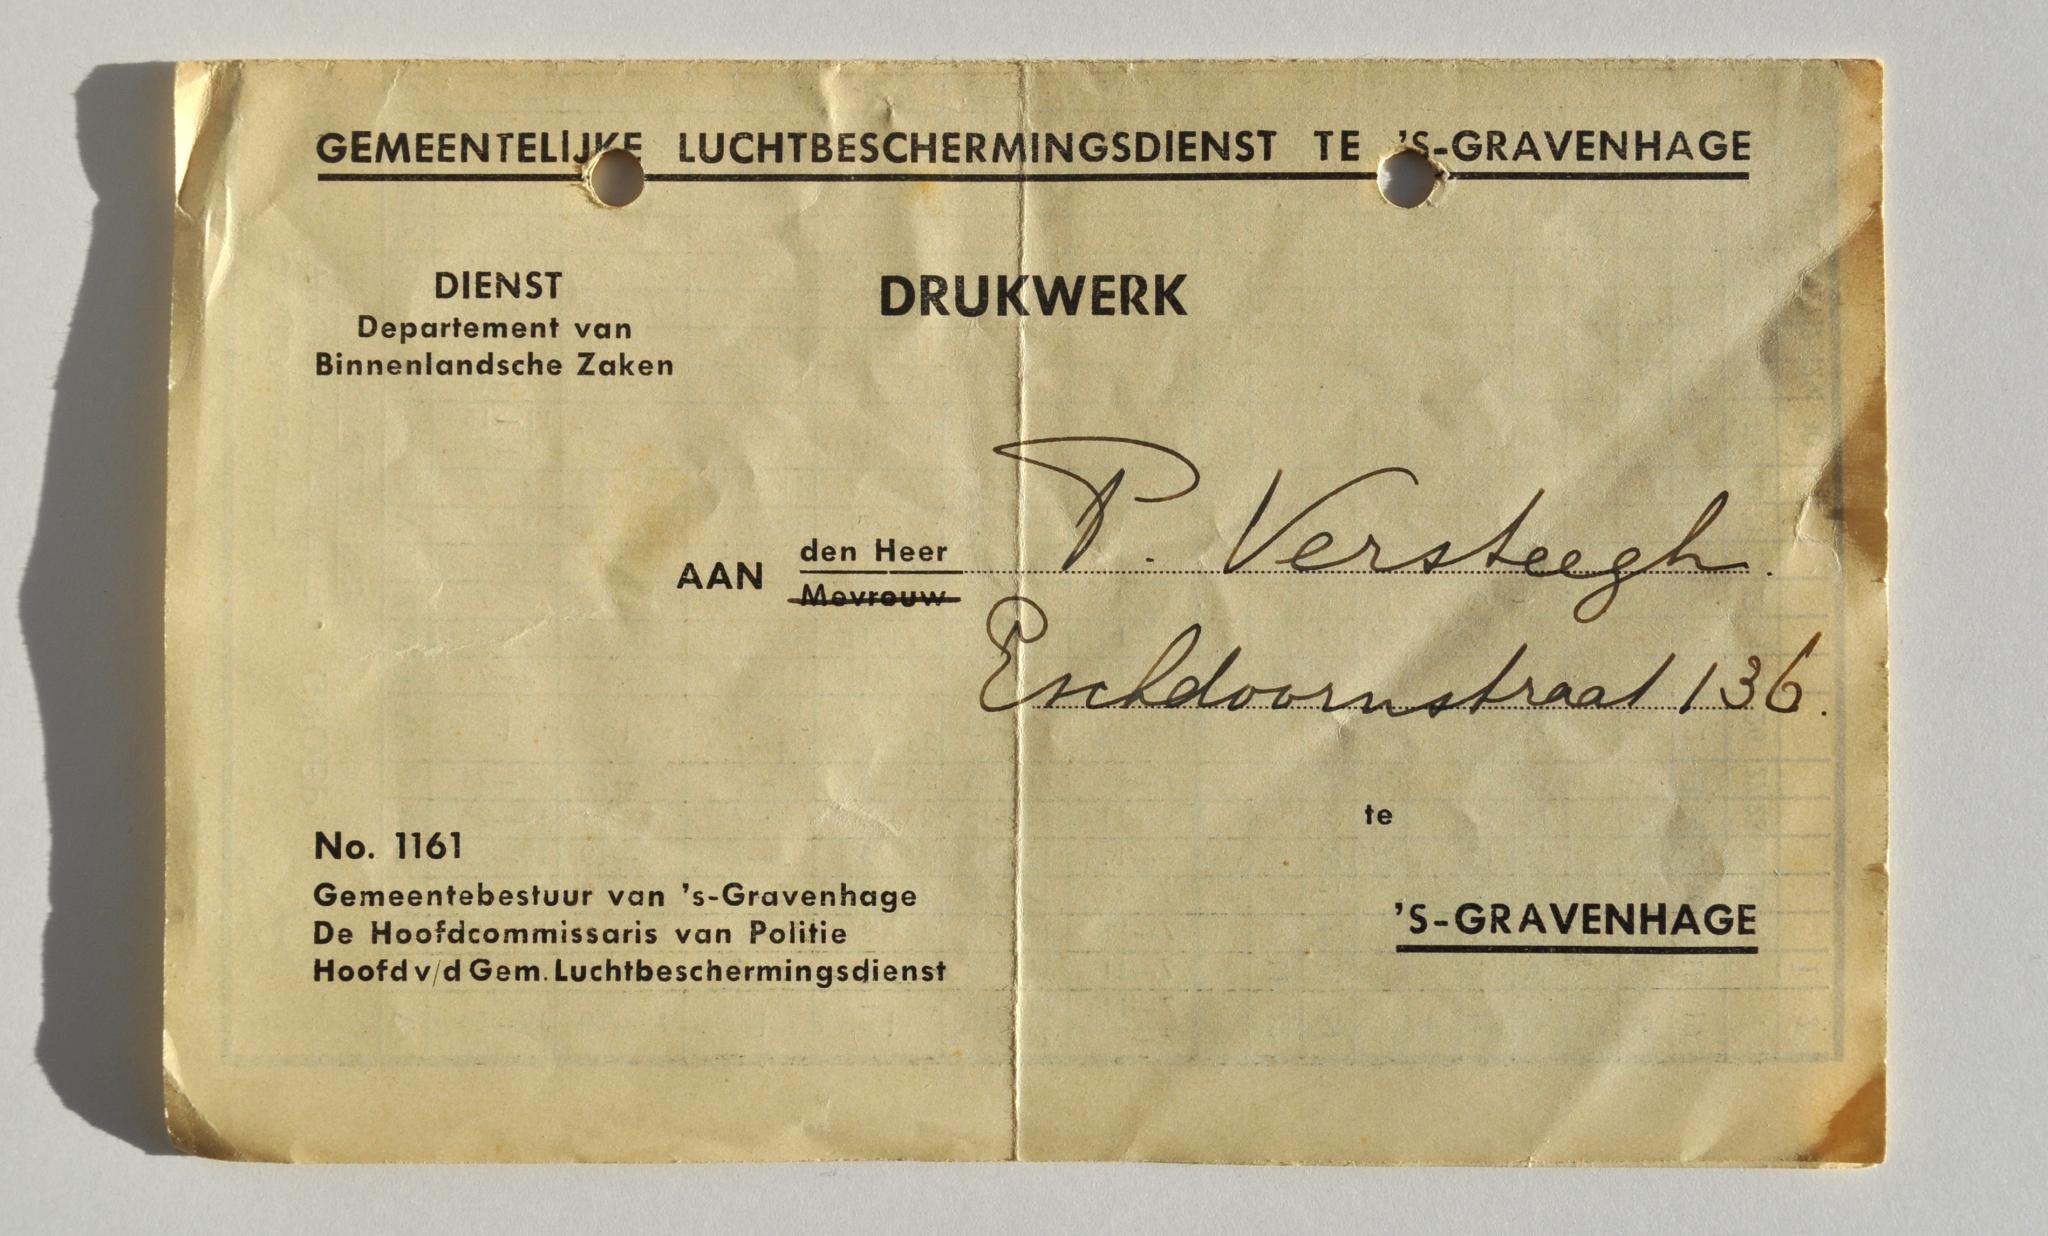 GEMEENTELIJKE LUCHTBESCHERMINGSDIENST TE 'S-GRAVENHAGE
DIENST
Departement van
Binnenlandsche Zaken
DRUKWERK
AAN den Heer P. Versteegh.
Mevrouw
Eschdoornstraat 136.
te
'S-GRAVENHAGE
No. 1161
Gemeentebestuur van 's-Gravenhage
De Hoofdcommissaris van Politie
Hoofd v/d Gem. Luchtbeschermingsdienst